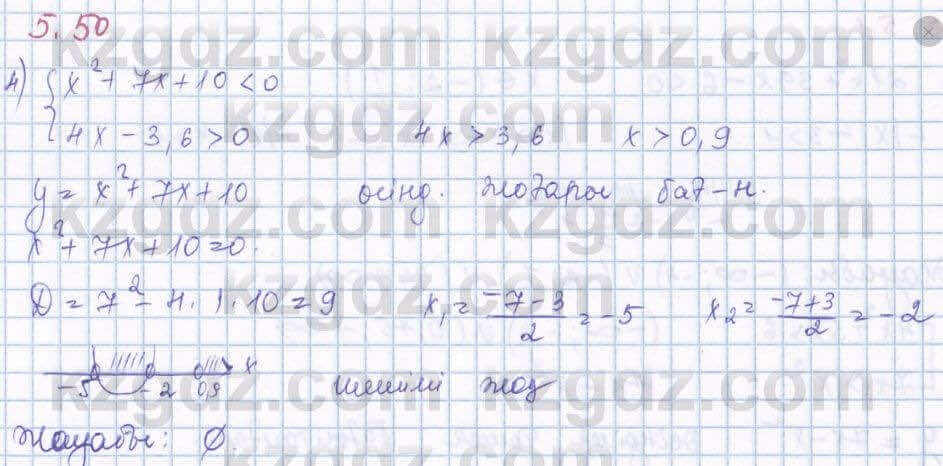 5.50
4) { x² + 7x + 10 < 0
4x - 3,6 > 0 4x > 3,6 x > 0,9
y = x² + 7x + 10 осінд. жоғары бағ-н.
x² + 7x + 10 = 0.
D = 7² - 4 · 1 · 10 = 9 x₁ = (-7-3)/2 = -5 x₂ = (-7+3)/2 = -2
-5 -2 0,9 x шешімі жоқ
Жауабы: ∅.
kzgdz.com